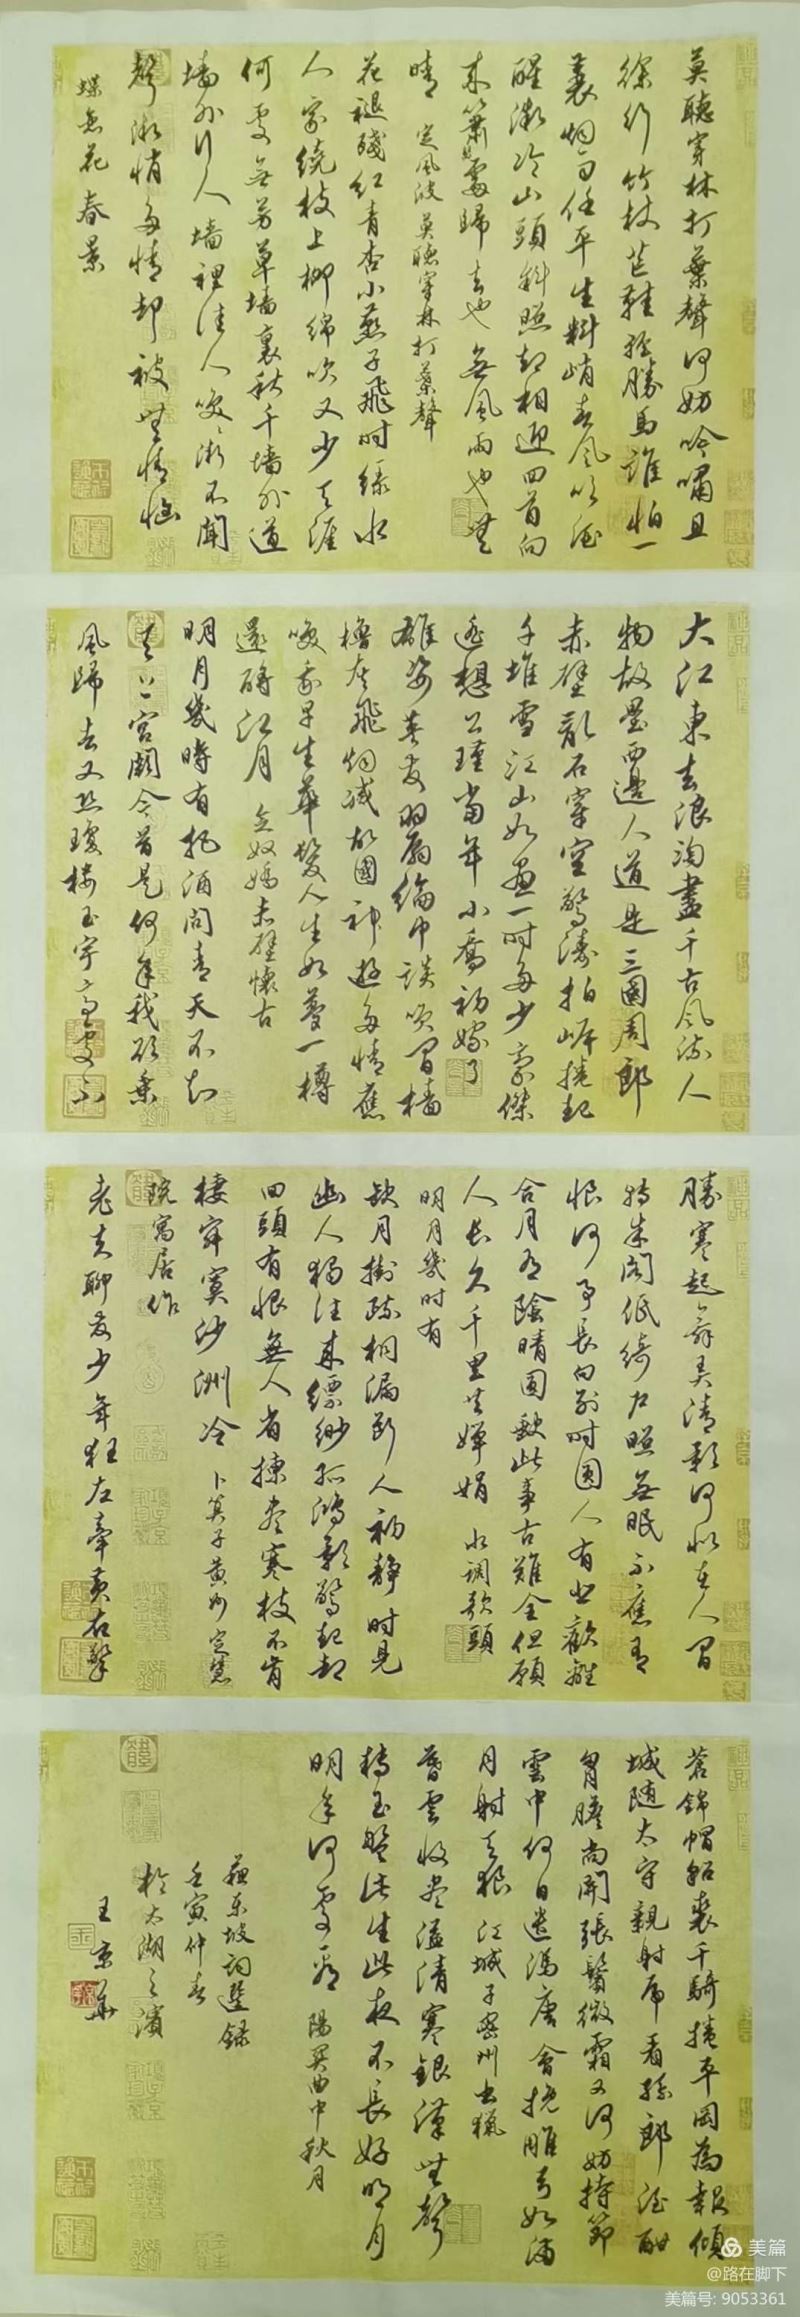 莫聽穿林打葉聲何妨吟嘯且
徐行竹杖芒鞋輕勝馬誰怕一
蓑烟雨任平生料峭春風吹酒
醒微冷山頭斜照却相迎回首向
來蕭瑟處歸去也無風雨也無
晴 定風波莫聽穿林打葉聲
花褪殘紅青杏小燕子飛時綠水
人家繞枝上柳綿吹又少天涯
何處無芳草墙裏秋千墙外道
墙外行人墙裡佳人笑笑漸不聞
聲漸悄多情却被無情惱
蝶恋花春景
大江東去浪淘盡千古風流人
物故壘西邊人道是三國周郎
赤壁亂石穿空驚濤拍岸捲起
千堆雪江山如畫一時多少豪傑
遥想公瑾當年小喬初嫁了
雄姿英發羽扇綸巾談笑間檣
櫓灰飛烟滅故國神遊多情應
笑我早生華髮人生如夢一樽
還酹江月 念奴嬌赤壁懷古
明月幾時有把酒問青天不知
天上宮闕今昔是何年我欲乘
風歸去又恐瓊樓玉宇高處不
勝寒起舞弄清影何似在人間
轉朱閣低綺户照無眠不應有
恨何事長向别時圓人有悲歡離
合月有陰晴圆缺此事古難全但願
人長久千里共嬋娟 水調歌頭
明月幾时有
缺月掛疏桐漏斷人初靜時見
幽人獨往來縹缈孤鴻影驚起却
回頭有恨無人省揀盡寒枝不肯
棲寂寞沙洲冷 卜算子黄州定慧
院寓居作
老夫聊發少年狂左牽黄右擎
蒼錦帽貂裘千騎捲平岡為報傾
城随太守親射虎看孫郎酒酣
胸膽尚開張鬢微霜又何妨持節
雲中何日遣馮唐會挽雕弓如滿
月射天狼 江城子密州出獵
暮雲收盡溢清寒銀漢無聲
轉玉盤此生此夜不長好明月
明年何處看 陽關曲中秋月
蘇東坡詞選録
壬寅仲春
於太湖之濱
王京華
美篇
@路在脚下
美篇号: 9053361